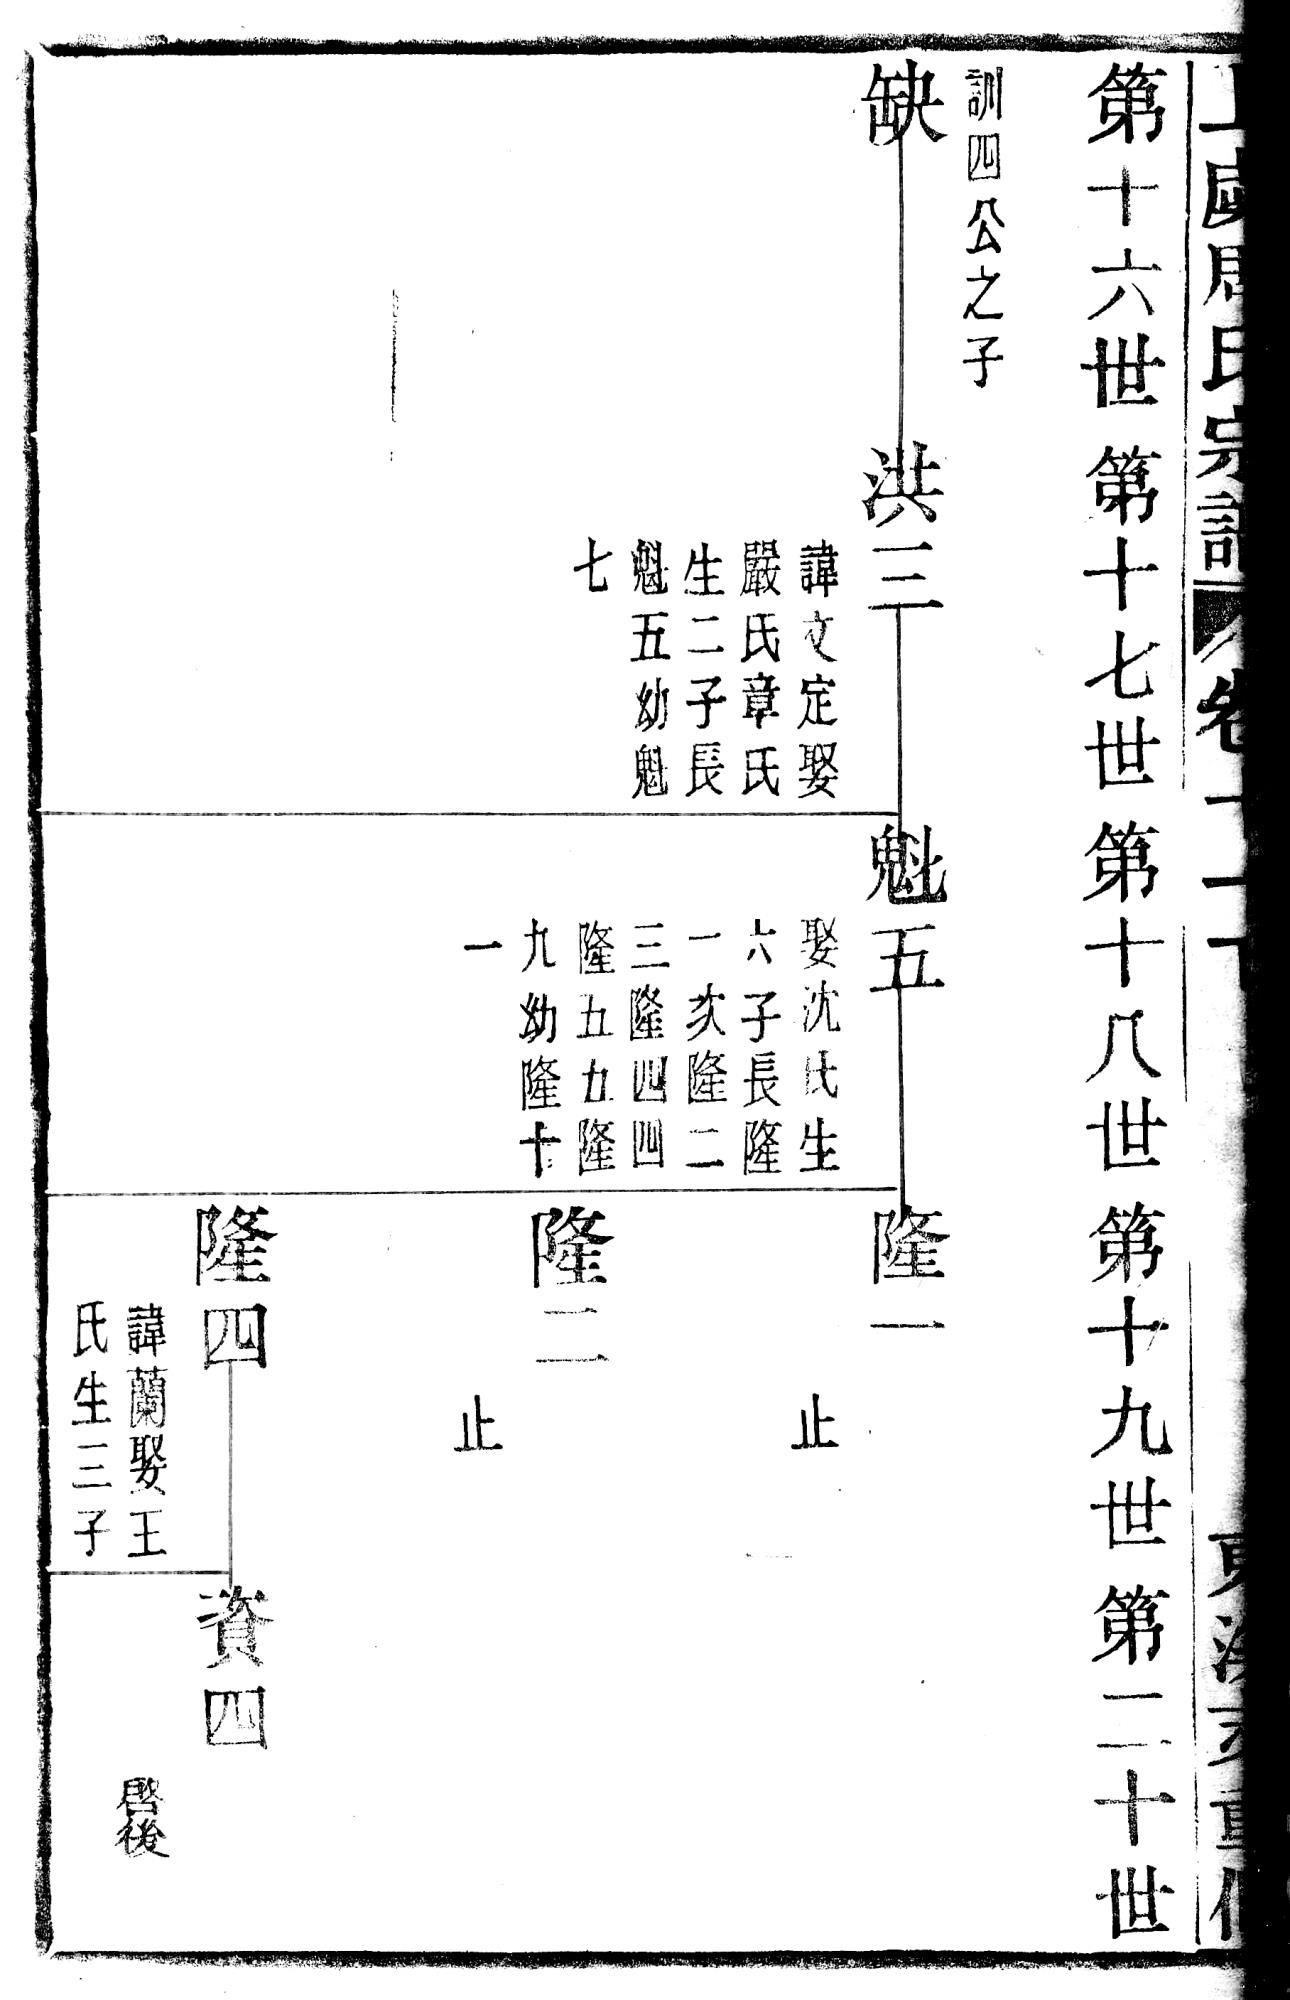 第十六世 第十七世 第十八世 第十九世 第二十世
訓四公之子
缺
洪三
諱文定娶
嚴氏章氏
生二子長
魁五幼魁
七
魁五
娶沈氏生
六子長隆
一次隆二
三隆四四
隆五五隆
九幼隆十
一
隆一
止
隆二
止
隆四
諱蘭娶王
氏生三子
資四
啓後